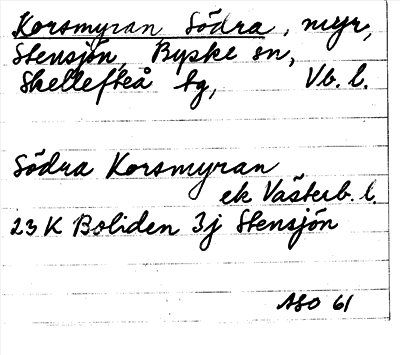 Korsmyran, Södra, myr,
Stensjön, Byske sn,
Skellefteå tg, Vb. l.
Södra Korsmyran
ek Västerb. l.
23 K Boliden 3j Stensjön
ASO 61